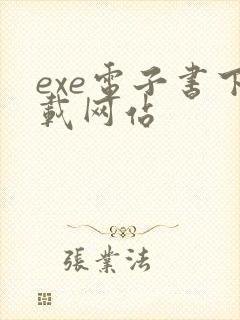 exe電子書下
載网佔
張業法